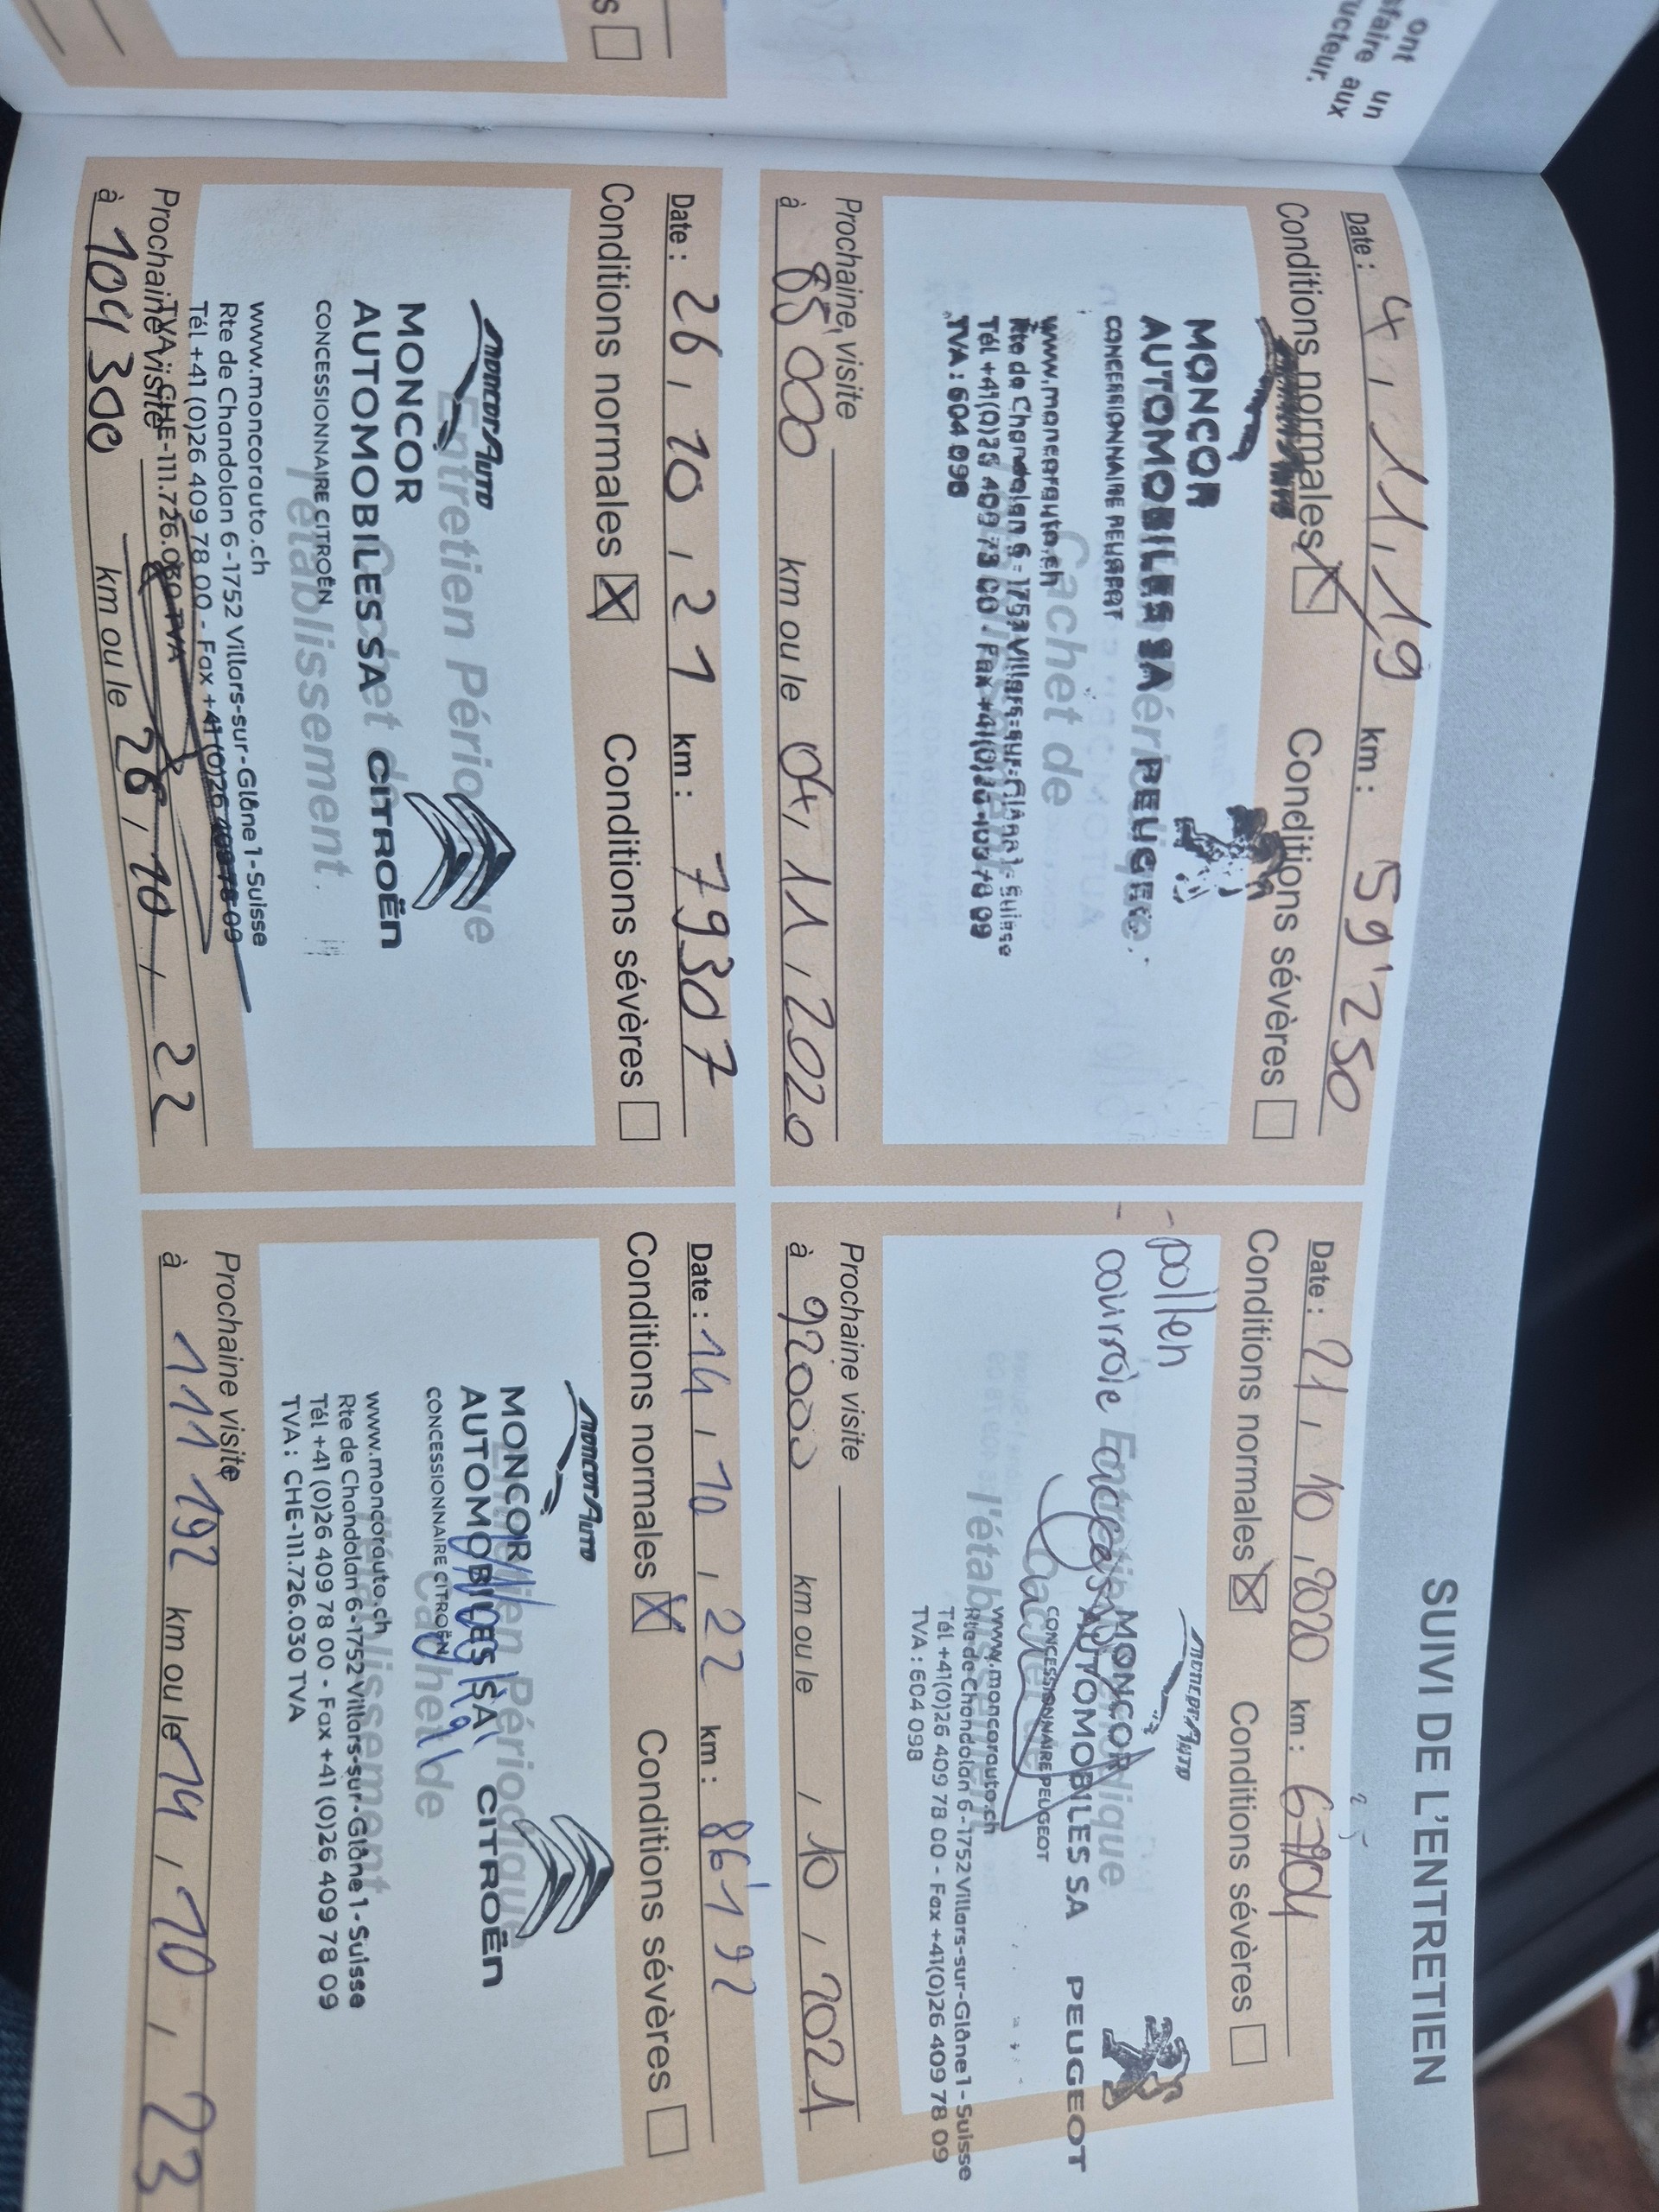 ont un
faire aux
ucteur.
s
SUIVI DE L'ENTRETIEN
Date : 4, 11, 19 km : 59'250
Conditions normales Conditions sévères
MONCOR
AUTOMOBILES SA PEUGEOT
CONCESSIONNAIRE PEUGEOT
Cachet de
www.moncorauto.ch
Rte de Chandolan 6 - 1752 Villars-sur-Glâne 1 - Suisse
Tél +41(0)26 409 78 00 - Fax +41(0)26 409 78 09
TVA : 604 098
Prochaine visite
à 85000 km ou le 04, 11, 2020
Date : 21, 10, 2020 km :
Conditions normales Conditions sévères
- pollen
- courroie
MONCOR AUTO
Entretien Périodique
MONCOR
AUTOMOBILES SA PEUGEOT
CONCESSIONNAIRE PEUGEOT
Cachet de
l'établissement
www.moncorauto.ch
Rte de Chandolan 6 - 1752 Villars-sur-Glâne 1 - Suisse
Tél +41(0)26 409 78 00 - Fax +41(0)26 409 78 09
TVA : 604 098
Prochaine visite
à 92000 km ou le , 10, 2021
Date : 26, 10, 21 km : 79307
Conditions normales Conditions sévères
MONCOR AUTO
Entretien Périodique
MONCOR
AUTOMOBILES SA CITROËN
CONCESSIONNAIRE CITROËN
Cachet de
l'établissement
www.moncorauto.ch
Rte de Chandolan 6 - 1752 Villars-sur-Glâne 1 - Suisse
Tél +41 (0)26 409 78 00 - Fax +41 (0)26 409 78 09
TVA : CHE-111.726.030 TVA
Prochaine visite
à 104300 km ou le 26, 10, 22
Date : 14, 10, 22 km : 86'192
Conditions normales Conditions sévères
MONCOR AUTO
Entretien Périodique
MONCOR
AUTOMOBILES SA CITROËN
CONCESSIONNAIRE CITROËN
Cachet de
l'établissement
www.moncorauto.ch
Rte de Chandolan 6 - 1752 Villars-sur-Glâne 1 - Suisse
Tél +41 (0)26 409 78 00 - Fax +41 (0)26 409 78 09
TVA : CHE-111.726.030 TVA
Prochaine visite
à 111192 km ou le 14, 10, 23